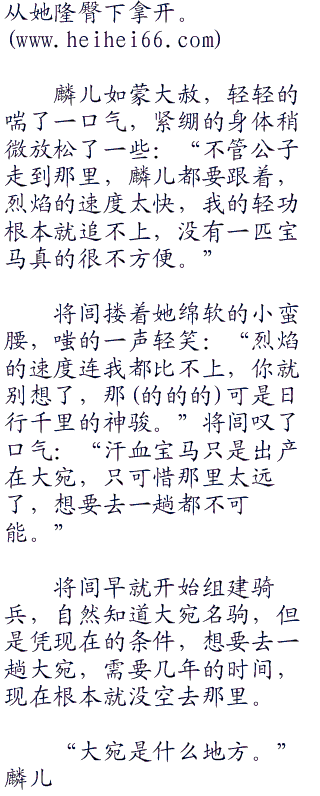 从她隆臀下拿开。
(www.heihei66.com)
麟儿如蒙大赦，轻轻的
喘了一口气，紧绷的身体稍
微放松了一些：“不管公子
走到那里，麟儿都要跟着，
烈焰的速度太快，我的轻功
根本就追不上，没有一匹宝
马真的很不方便。”
将闾搂着她绵软的小蛮
腰，嗤的一声轻笑：“烈焰
的速度连我都比不上，你就
别想了，那(的的的)可是日
行千里的神骏。”将闾叹了
口气：“汗血宝马只是出产
在大宛，只可惜那里太远
了，想要去一趟都不可
能。”
将闾早就开始组建骑
兵，自然知道大宛名驹，但
是凭现在的条件，想要去一
趟大宛，需要几年的时间，
现在根本就没空去那里。
“大宛是什么地方。”
麟儿